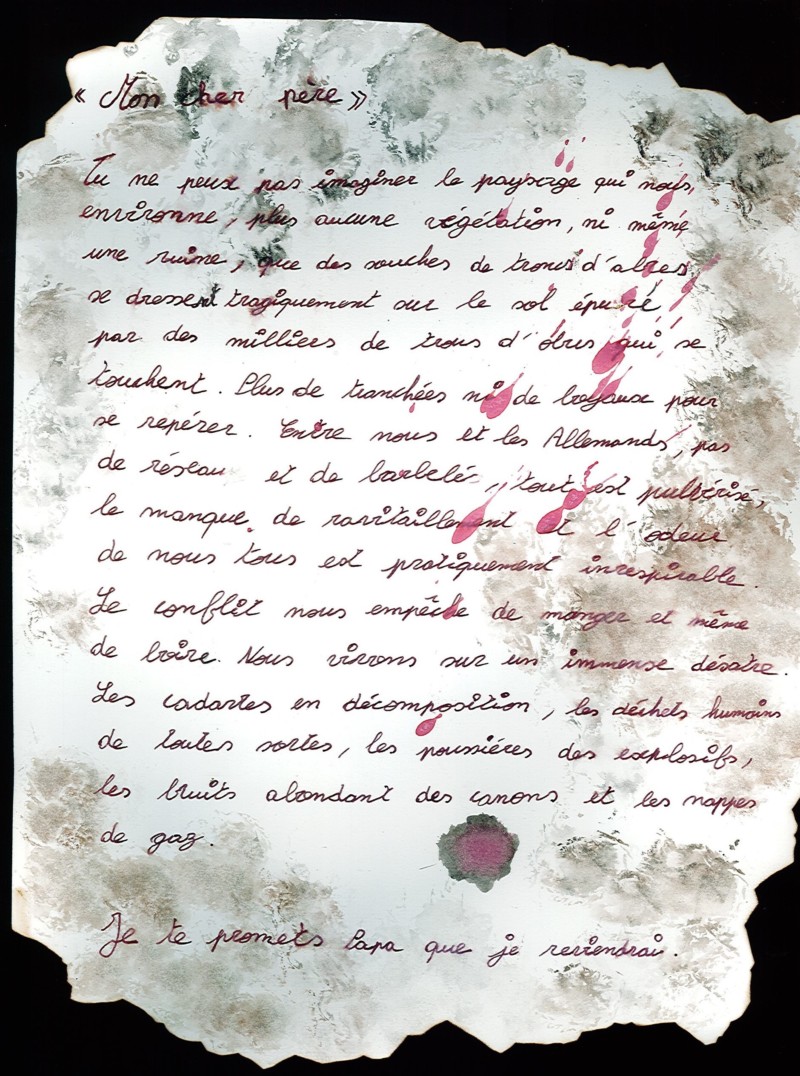 « Mon cher père »
Tu ne peux pas imaginer le paysage qui nous,
environne, plus aucune végétation, ni même
une ruine, que des souches de troncs d'albres,
se dressent tragiquement sur le sol épuré
par des milliers de trous d'obus qui se
touchent. Plus de tranchées ni de boyaux pour
se repérer. Entre nous et les Allemands, pas
de réseau et de barbelé, tout est pulvérisé,
le manque de ravitaillement et l'odeur
de nous tous est pratiquement irrespirable.
Le conflit nous empêche de manger et même
de boire. Nous vivons sur un immense désatre.
Les cadavres en décomposition, les déchets humains
de toutes sortes, les poussiéres des explosifs,
les bruits abondant des canons et les nappes
de gaz.
Je te promets Papa que je reviendrai.